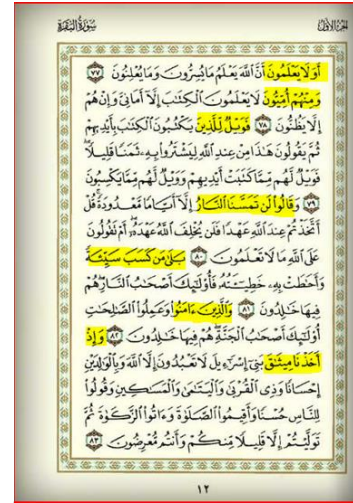 الجزء الأول
سورة البقرة
أَوَلَا يَعْلَمُونَ أَنَّ اللَّهَ يَعْلَمُ مَا يُسِرُّونَ وَمَا يُعْلِنُونَ ٧٧
وَمِنْهُمْ أُمِّيُّونَ لَا يَعْلَمُونَ الْكِتَٰبَ إِلَّا أَمَانِيَّ وَإِنْ هُمْ
إِلَّا يَظُنُّونَ ٧٨ فَوَيْلٌ لِّلَّذِينَ يَكْتُبُونَ الْكِتَٰبَ بِأَيْدِيهِمْ
ثُمَّ يَقُولُونَ هَٰذَا مِنْ عِندِ اللَّهِ لِيَشْتَرُوا۟ بِهِۦ ثَمَنًا قَلِيلًا
فَوَيْلٌ لَّهُم مِّمَّا كَتَبَتْ أَيْدِيهِمْ وَوَيْلٌ لَّهُم مِّمَّا يَكْسِبُونَ
٧٩ وَقَالُوا۟ لَن تَمَسَّنَا النَّارُ إِلَّا أَيَّامًا مَّعْدُودَةً قُلْ
أَتَّخَذْتُمْ عِندَ اللَّهِ عَهْدًا فَلَن يُخْلِفَ اللَّهُ عَهْدَهُۥ أَمْ تَقُولُونَ
عَلَى اللَّهِ مَا لَا تَعْلَمُونَ ٨٠ بَلَىٰ مَن كَسَبَ سَيِّئَةً
وَأَحَٰطَتْ بِهِۦ خَطِيٓـَٔتُهُۥ فَأُو۟لَٰٓئِكَ أَصْحَٰبُ النَّارِ هُمْ
فِيهَا خَٰلِدُونَ ٨١ وَالَّذِينَ ءَامَنُوا۟ وَعَمِلُوا۟ الصَّٰلِحَٰتِ
أُو۟لَٰٓئِكَ أَصْحَٰبُ الْجَنَّةِ هُمْ فِيهَا خَٰلِدُونَ ٨٢ وَإِذْ
أَخَذْنَا مِيثَٰقَ بَنِىٓ إِسْرَٰٓءِيلَ لَا تَعْبُدُونَ إِلَّا اللَّهَ وَبِالْوَٰلِدَيْنِ
إِحْسَانًا وَذِى الْقُرْبَىٰ وَالْيَتَٰمَىٰ وَالْمَسَٰكِينِ وَقُولُوا۟
لِلنَّاسِ حُسْنًا وَأَقِيمُوا۟ الصَّلَوٰةَ وَءَاتُوا۟ الزَّكَوٰةَ ثُمَّ
تَوَلَّيْتُمْ إِلَّا قَلِيلًا مِّنكُمْ وَأَنتُم مُّعْرِضُونَ ٨٣
١٢